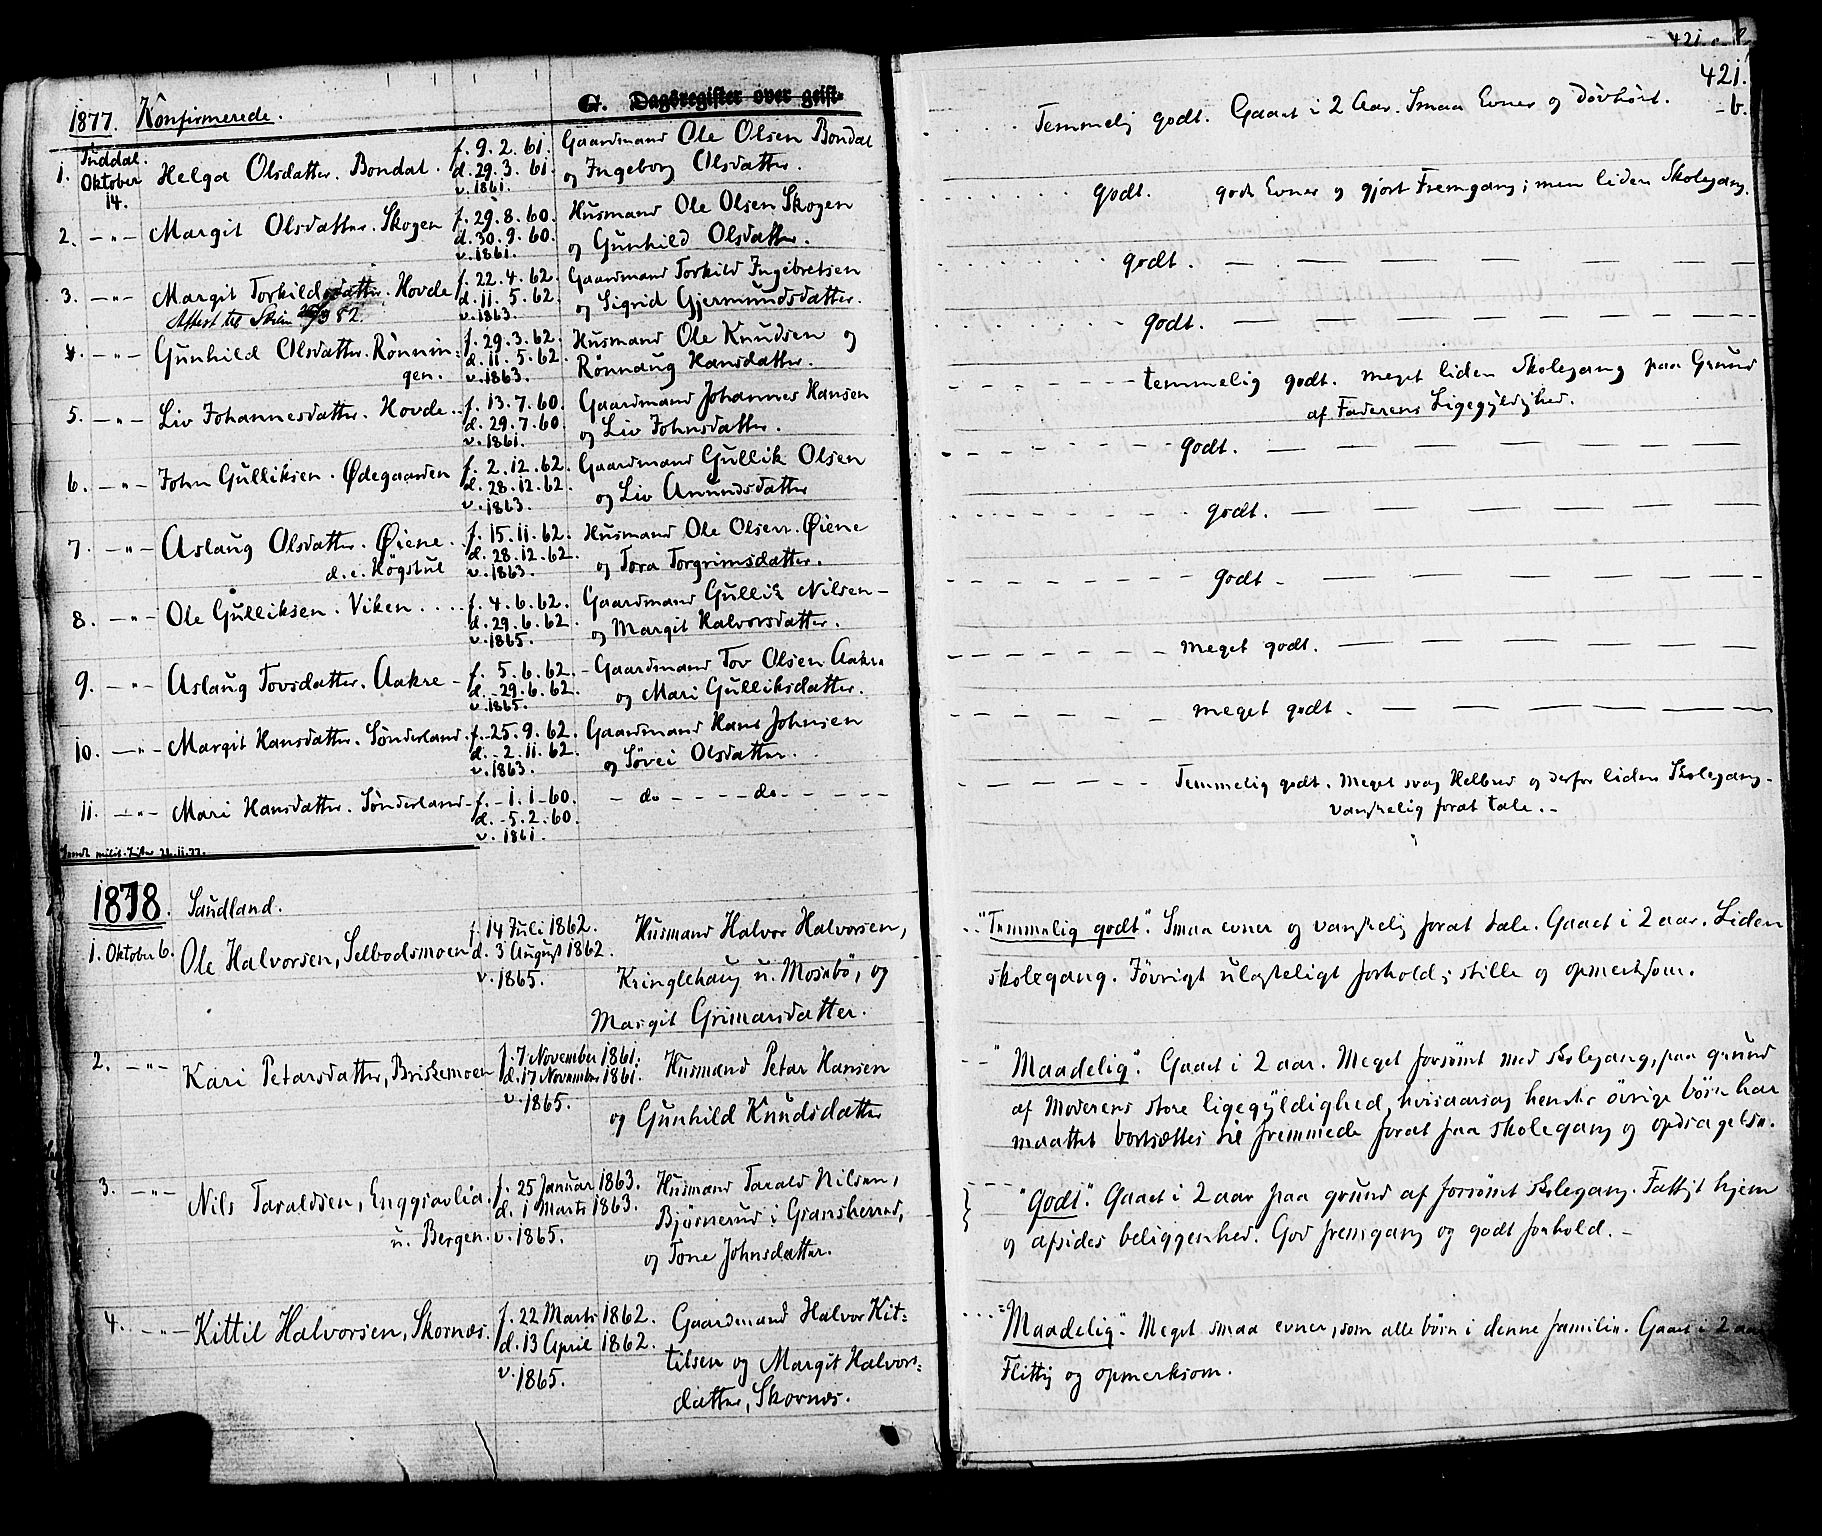 G. Dagsregister over geist-
1877. Konfirmerede.
1. Tuddal. Oktober 14. Helga Olsdatter. Bondal. f. 9. 2. 61. Gaardmand Ole Olsen Bondal
d. 29. 3. 61. og Ingeborg Olsdatter.
v. 1861.
2. -"- Margit Olsdatter. Skogen f. 29. 8. 60. Husmand Ole Olsen Skogen
d. 30. 9. 60. og Gunhild Olsdatter.
v. 1861.
3. -"- Margit Torkildsdatter. Hovde f. 22. 4. 62. Gaardmand Torkild Ingebretsen
Attest til Skien d. 11. 5. 62. og Sigrid Gjermundsdatter.
v. 1863.
4. -"- Gunhild Olsdatter. Rönnin- f. 29. 3. 62. Husmand Ole Knudsen og
gen. d. 11. 5. 62. Rönnaug Hansdatter.
v. 1863.
5. -"- Liv Johannesdatter. Hovde.. f. 13. 7. 60. Gaardmand Johannes Hansen
d. 29. 7. 60. og Liv Johnsdatter.
v. 1861.
6. -"- John Gulliksen. Ødegaarden f. 2. 12. 62. Gaardmand Gullik Olsen
d. 28. 12. 62. og Liv Anundsdatter
v. 1863.
7. -"- Aslaug Olsdatter. Øiene. f. 15. 11. 62. Husmand Ole Olsen. Øiene
d.e. Högstul d. 28. 12. 62. og Tora Torgrimsdatter.
v. 1863.
8. -"- Ole Gulliksen. Viken.... f. 4. 6. 62. Gaardmand Gullik Nilsen-
d. 29. 6. 62. og Margit Halvorsdatter.
v. 1865.
9. -"- Aslaug Tovsdatter. Aakre - f. 5. 6. 62. - Gaardmand Tov Olsen Aakre
d. - 29. 6. 62. og Mari Gulliksdatter.
v. 1865.
10. -"- Margit Hansdatter. Sønderland. f. - 25. 9. 62. Gaardmand Hans Johnsen
d. - 2. 11. 62. og Søvei Olsdatter.
v. 1863.
11. -"- Mari Hansdatter. Sønderland - f. - 1. 1 - 60. - do - - - - do - - - - -
d. - 5. 2. 60.
v. 1861.
1878. Saudland.
1. Oktober 6. Ole Halvorsen, Selbodsmoen f. 14 Juli 1862. Husmand Halvor Halvorsen,
d. 3 August 1862. Kringlehaug u. Mosebö, og
v. 1865. Margit Grimarsdatter.
2. -"- Kari Petarsdatter, Briskemoen f. 7 November 1861. Husmand Petar Hansen
d. 17 November 1861. og Gunhild Knudsdatter
v. 1865.
3. -"- Nils Taraldsen, Enggravlia. f. 25 Januar 1863. Husmand Tarald Nilsen,
d. 1 Marts 1863. Bjørnerud i Gransherred,
u. Bergen. v. 1865. og Tone Johnsdatter.
4. -"- Kittil Halvorsen, Skornes. f. 22 Marts 1862. Gaardmand Halvor Kit-
d. 13 April 1862. tilsen og Margit Halvors-
v. 1865. datter, Skornes.
421.
-b.
Temmelig godt. Gaaet i 2 Aar. Smaa Evner og døvhört.
godt. gode Evner og gjort Fremgang; men liden Skolegang.
godt. - - - - - - -
godt. - - - - - - -
temmelig godt. meget liden Skolegang paa Grund
af Faderens Ligegyldighed.
godt. - - - - - - -
godt. - - - - - - -
godt - - - - - - -
meget godt. - - - - - -
meget godt. - - - - - -
Temmelig godt. Meget svag Helbred og derfor liden Skolegang -
vanskelig forat tale. -
"Temmelig godt". Smaa evner og vanskelig forat tale. Gaaet i 2 aar. Liden
skolegang. Forövrigt ulasteligt forhold; stille og opmerksom.
"Maadelig". Gaaet i 2 aar. Meget forsömt med skolegang, paa grund
af Moderens store ligegyldighed, hvisaarsag hendes övrige börn har
maattet bortsættes til fremmede forat faa skolegang og opdragelse.
"Godt". Gaaet i 2 aar paa grund af forsömt skolegang. Fattigt hjem
og afsides beliggenhed. God fremgang og godt forhold. -
"Maadelig". Meget smaa evner, som alle börn i denne familie. Gaaet i 2 aar
Flittig og opmerksom.